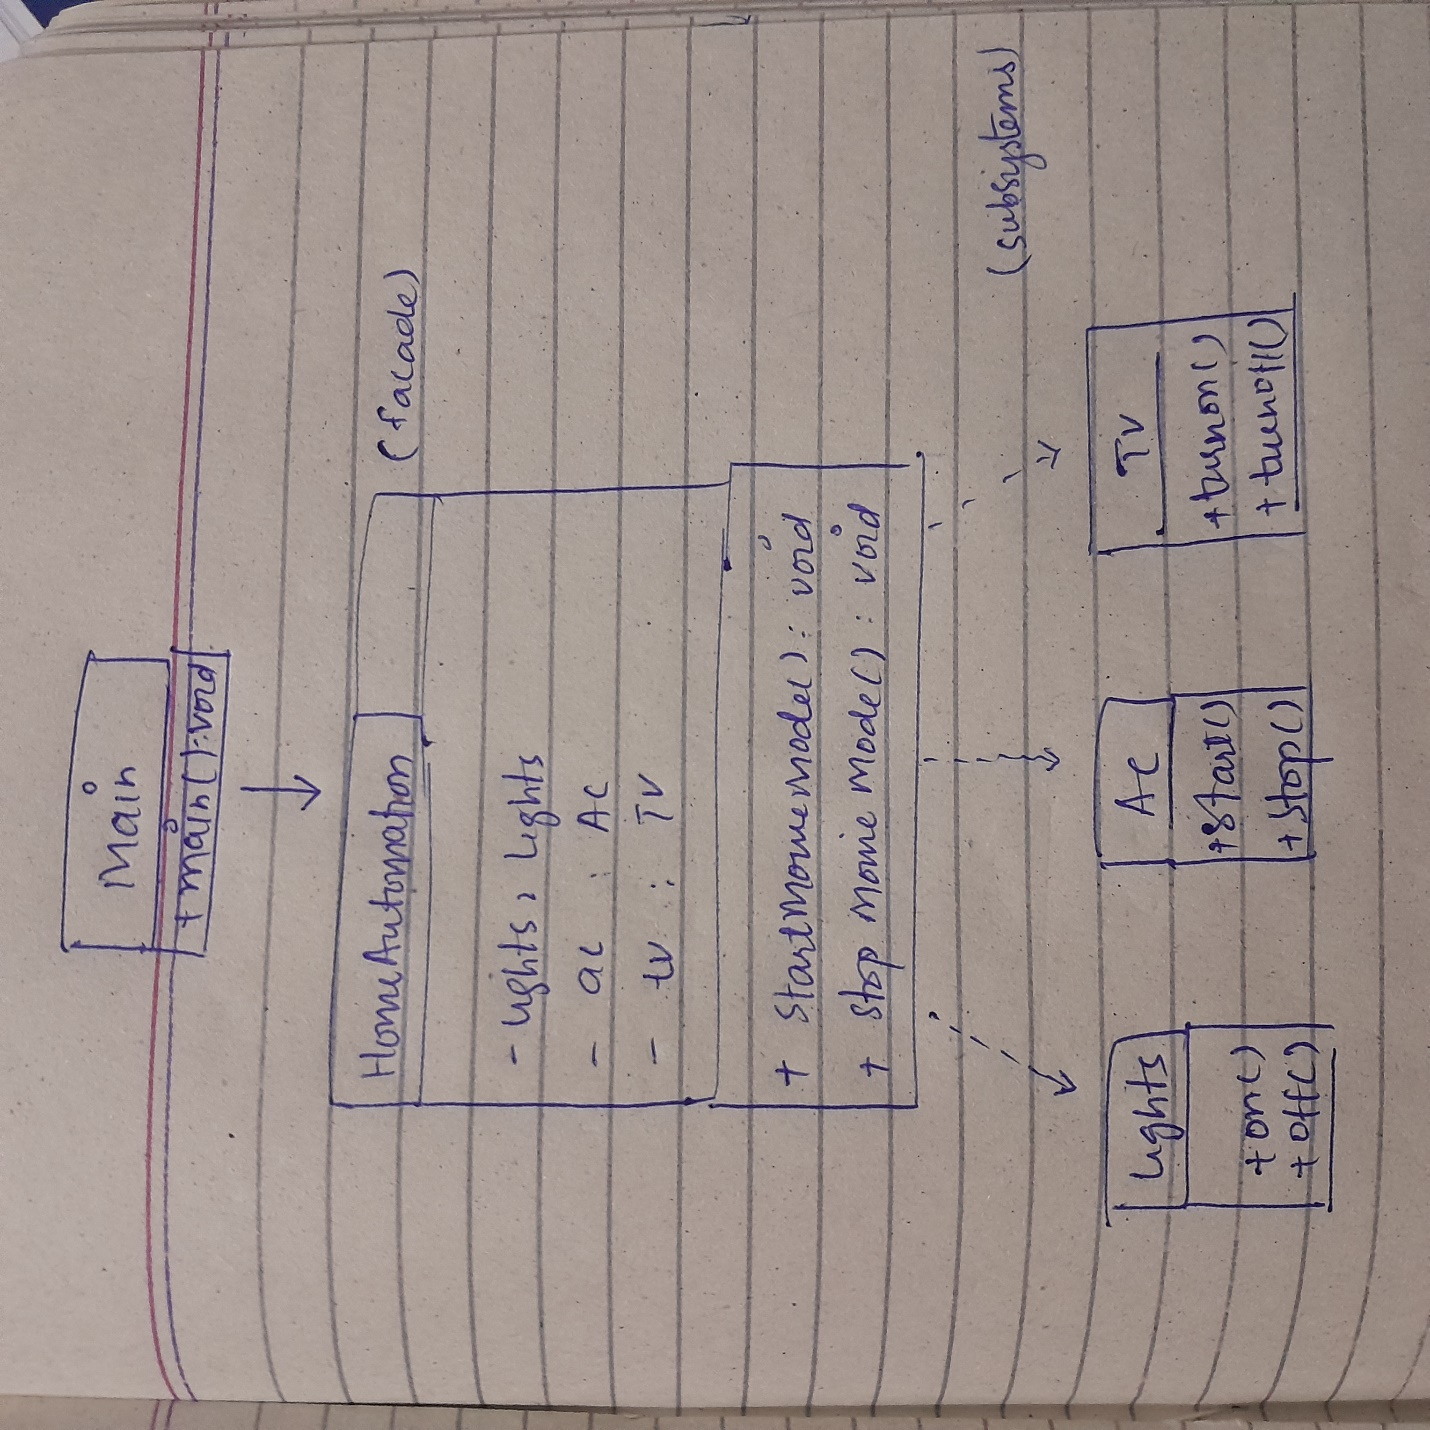 Main
+ main() : void
HomeAutomation
(facade)
- lights : Lights
- ac : AC
- tv : TV
+ StartMovieMode() : void
+ Stop Movie Mode() : void
(subsystems)
Lights
+ on()
+ off()
AC
+ Start()
+ Stop()
TV
+ turnon()
+ turnoff()